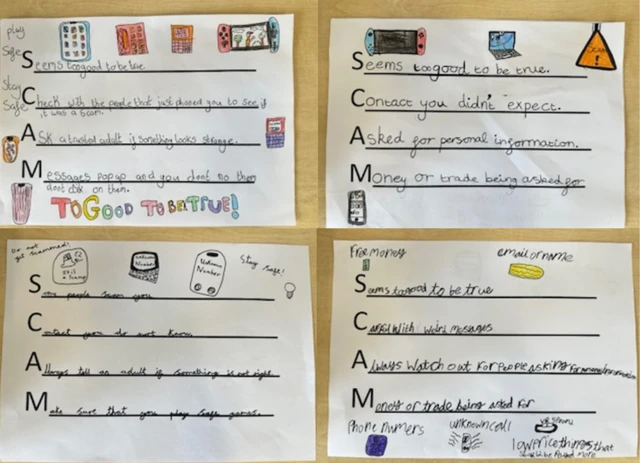 play
Safe
Stay
Safe
Seems too good to be true.
Check with the people that just phoned you to see if
it was a scam.
Ask a trusted adult if something looks strange.
Messages pop up and you dont no then
dont click on them.
TO GOOD TO BE TRUE!
SCAM
!
Seems too good to be true.
Contact you didn't expect.
Asked for personal information.
Money or trade being asked for
Do not
get scammed!
Unknown
Number
Unknown
Number
Stay safe!
Some people scam you
Contact you do not know
Always tell an adult if something is not right
Make sure that you play safe games.
Free money
email or name
Seams too good to be true
Careful with weird messages
Always watch out for people asking for personal information
Money or trade being asked for
Phone numers
unknown call
low price things that
should be more